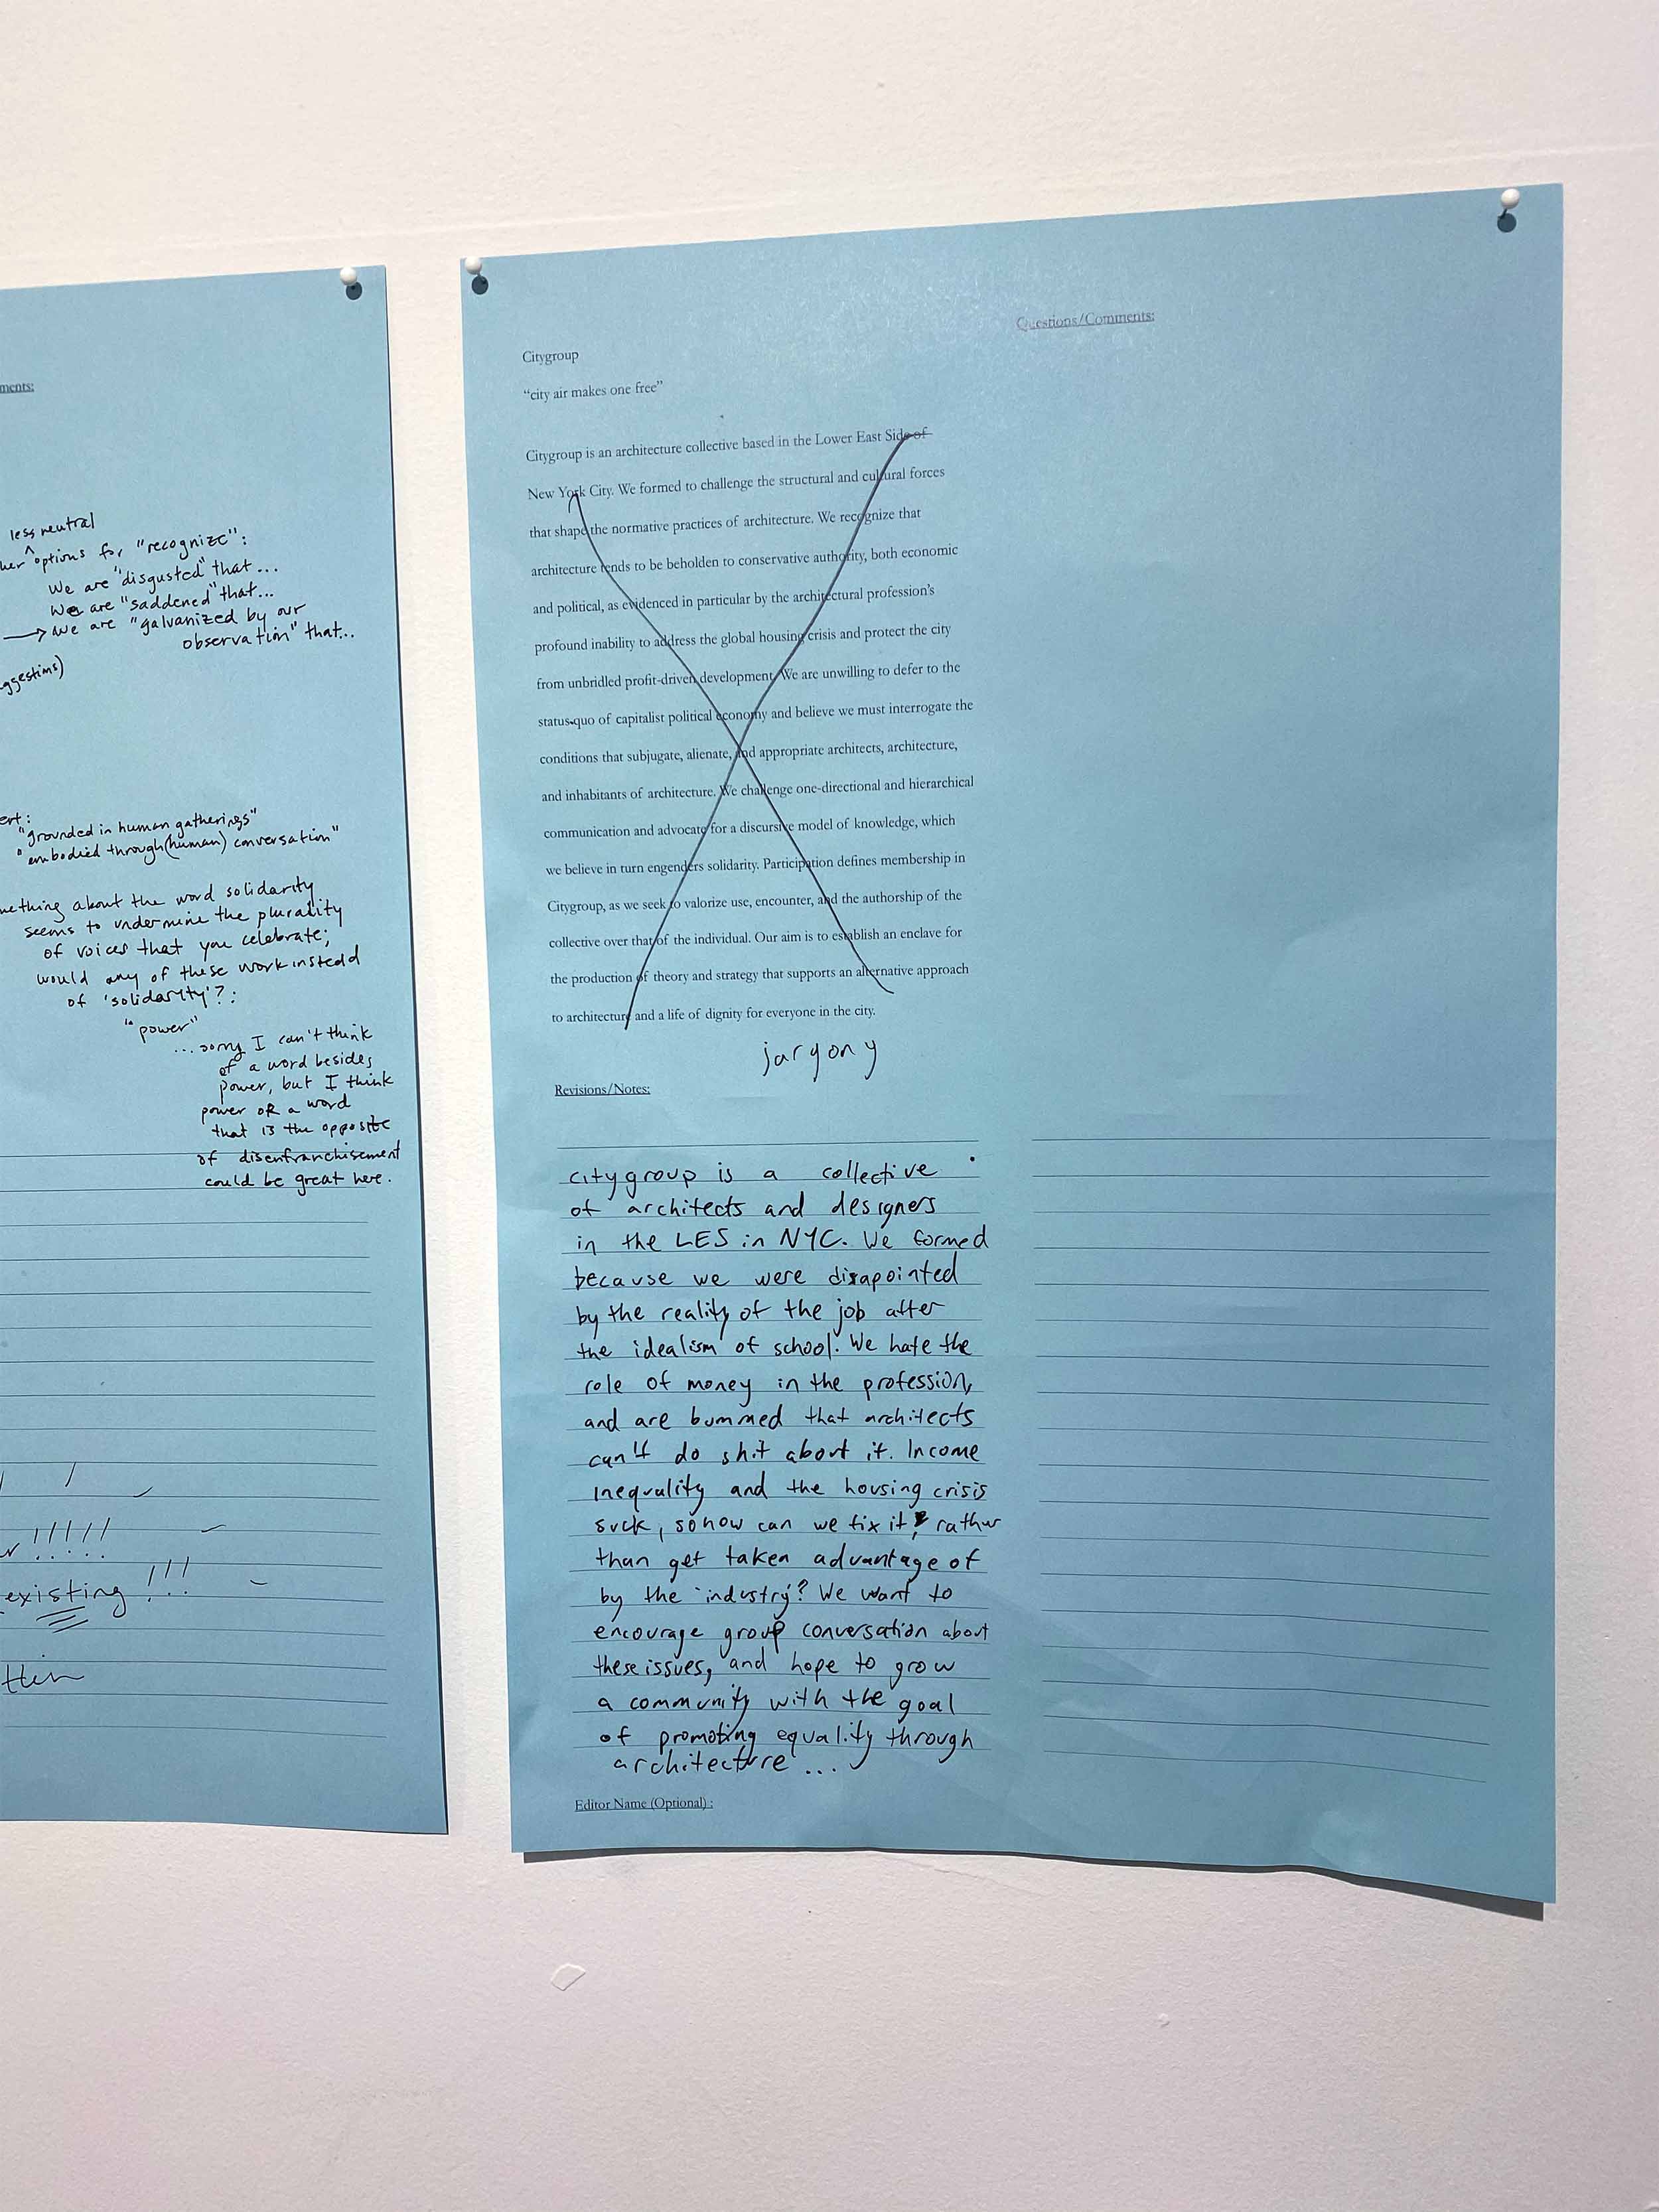 ments:
less neutral
options for "recognize":
We are "disgusted" that...
We are "saddened" that...
→ We are "galvanized by our
observation" that...
"grounded in human gatherings"
"embodied through (human) conversation"
about the word solidarity
seems to undermine the plurality
of voices that you celebrate;
would any of these work instedd
of 'solidarity'?:
"power"
...sorry I can't think
of a word besides
power, but I think
power OR a word
that is the opposite
of disenfranchisement
could be great here.
!!!!!
existing !!!
Questions/Comments:
Citygroup
"city air makes one free"
Citygroup is an architecture collective based in the Lower East Side of
New York City. We formed to challenge the structural and cultural forces
that shape the normative practices of architecture. We recognize that
architecture tends to be beholden to conservative authority, both economic
and political, as evidenced in particular by the architectural profession's
profound inability to address the global housing crisis and protect the city
from unbridled profit-driven development. We are unwilling to defer to the
status-quo of capitalist political economy and believe we must interrogate the
conditions that subjugate, alienate, and appropriate architects, architecture,
and inhabitants of architecture. We challenge one-directional and hierarchical
communication and advocate for a discursive model of knowledge, which
we believe in turn engenders solidarity. Participation defines membership in
Citygroup, as we seek to valorize use, encounter, and the authorship of the
collective over that of the individual. Our aim is to establish an enclave for
the production of theory and strategy that supports an alternative approach
to architecture and a life of dignity for everyone in the city.
jargony
Revisions/Notes:
citygroup is a collective
of architects and designers
in the LES in NYC. We formed
because we were disapointed
by the reality of the job after
the idealism of school. We hate the
role of money in the profession,
and are bummed that architects
can't do shit about it. Income
inequality and the housing crisis
suck, so how can we fix it, rather
than get taken advantage of
by the 'industry'? We want to
encourage group conversation about
these issues, and hope to grow
a community with the goal
of promoting equality through
architecture ...
Editor Name (Optional) :